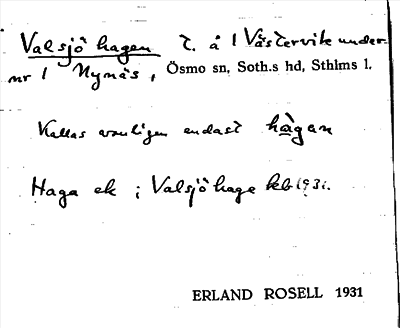 Valsjö hagen t. å 1 Västervik under
nr 1 Nynäs, Ösmo sn, Soth.s hd, Sthlms l.
Kallas vanligen endast hàgan
Haga ek i Valsjö hage kb 1931.
ERLAND ROSELL 1931